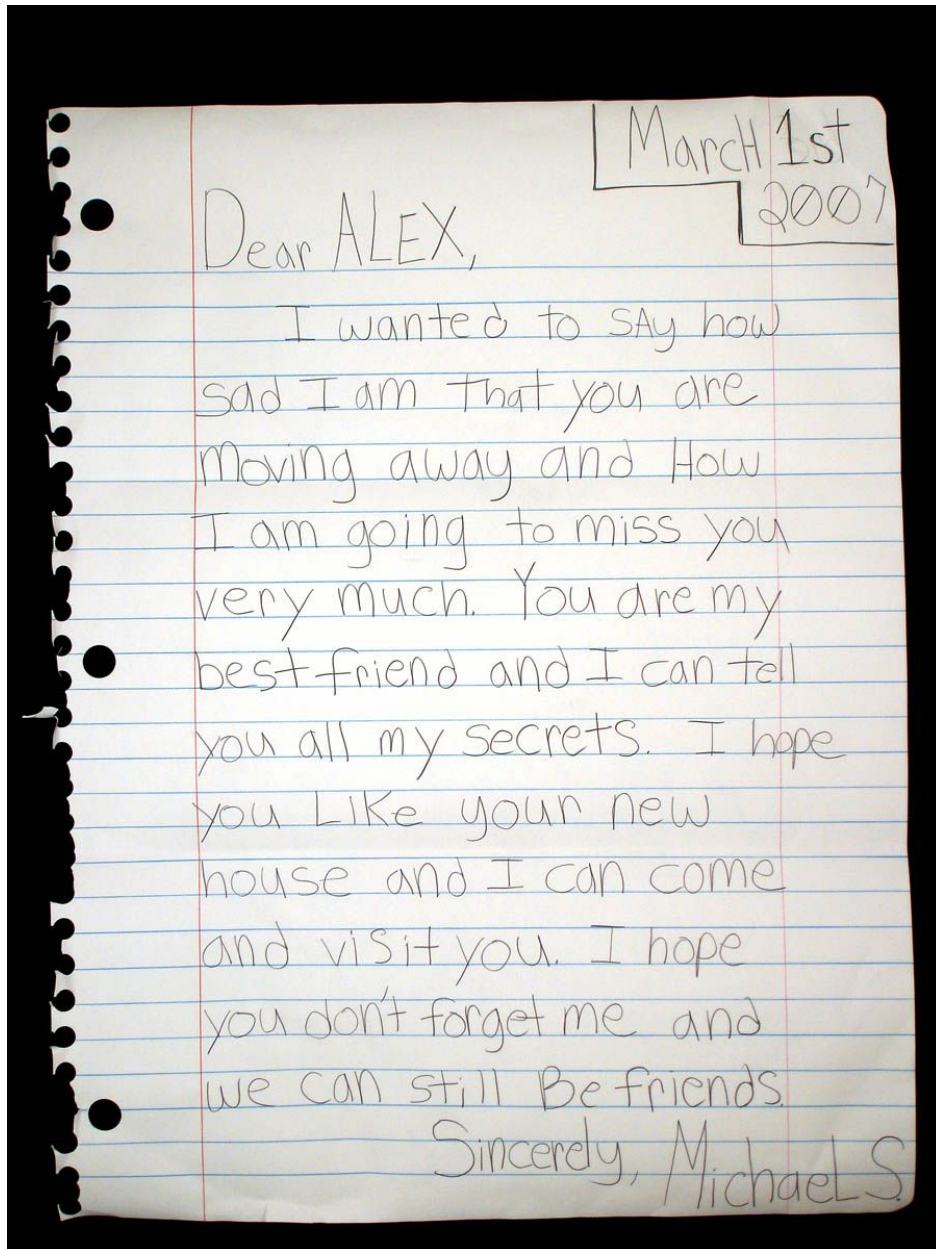 MarcH 1st
2007
Dear ALEX,
I wanted to SAy how
sad I am that you are
moving away and How
I am going to miss you
very much. You are my
best friend and I can tell
you all my secrets. I hope
you LiKe your new
house and I can come
and visit you. I hope
you don't forget me and
we can still Be friends.
Sincerely, MichaeL S.